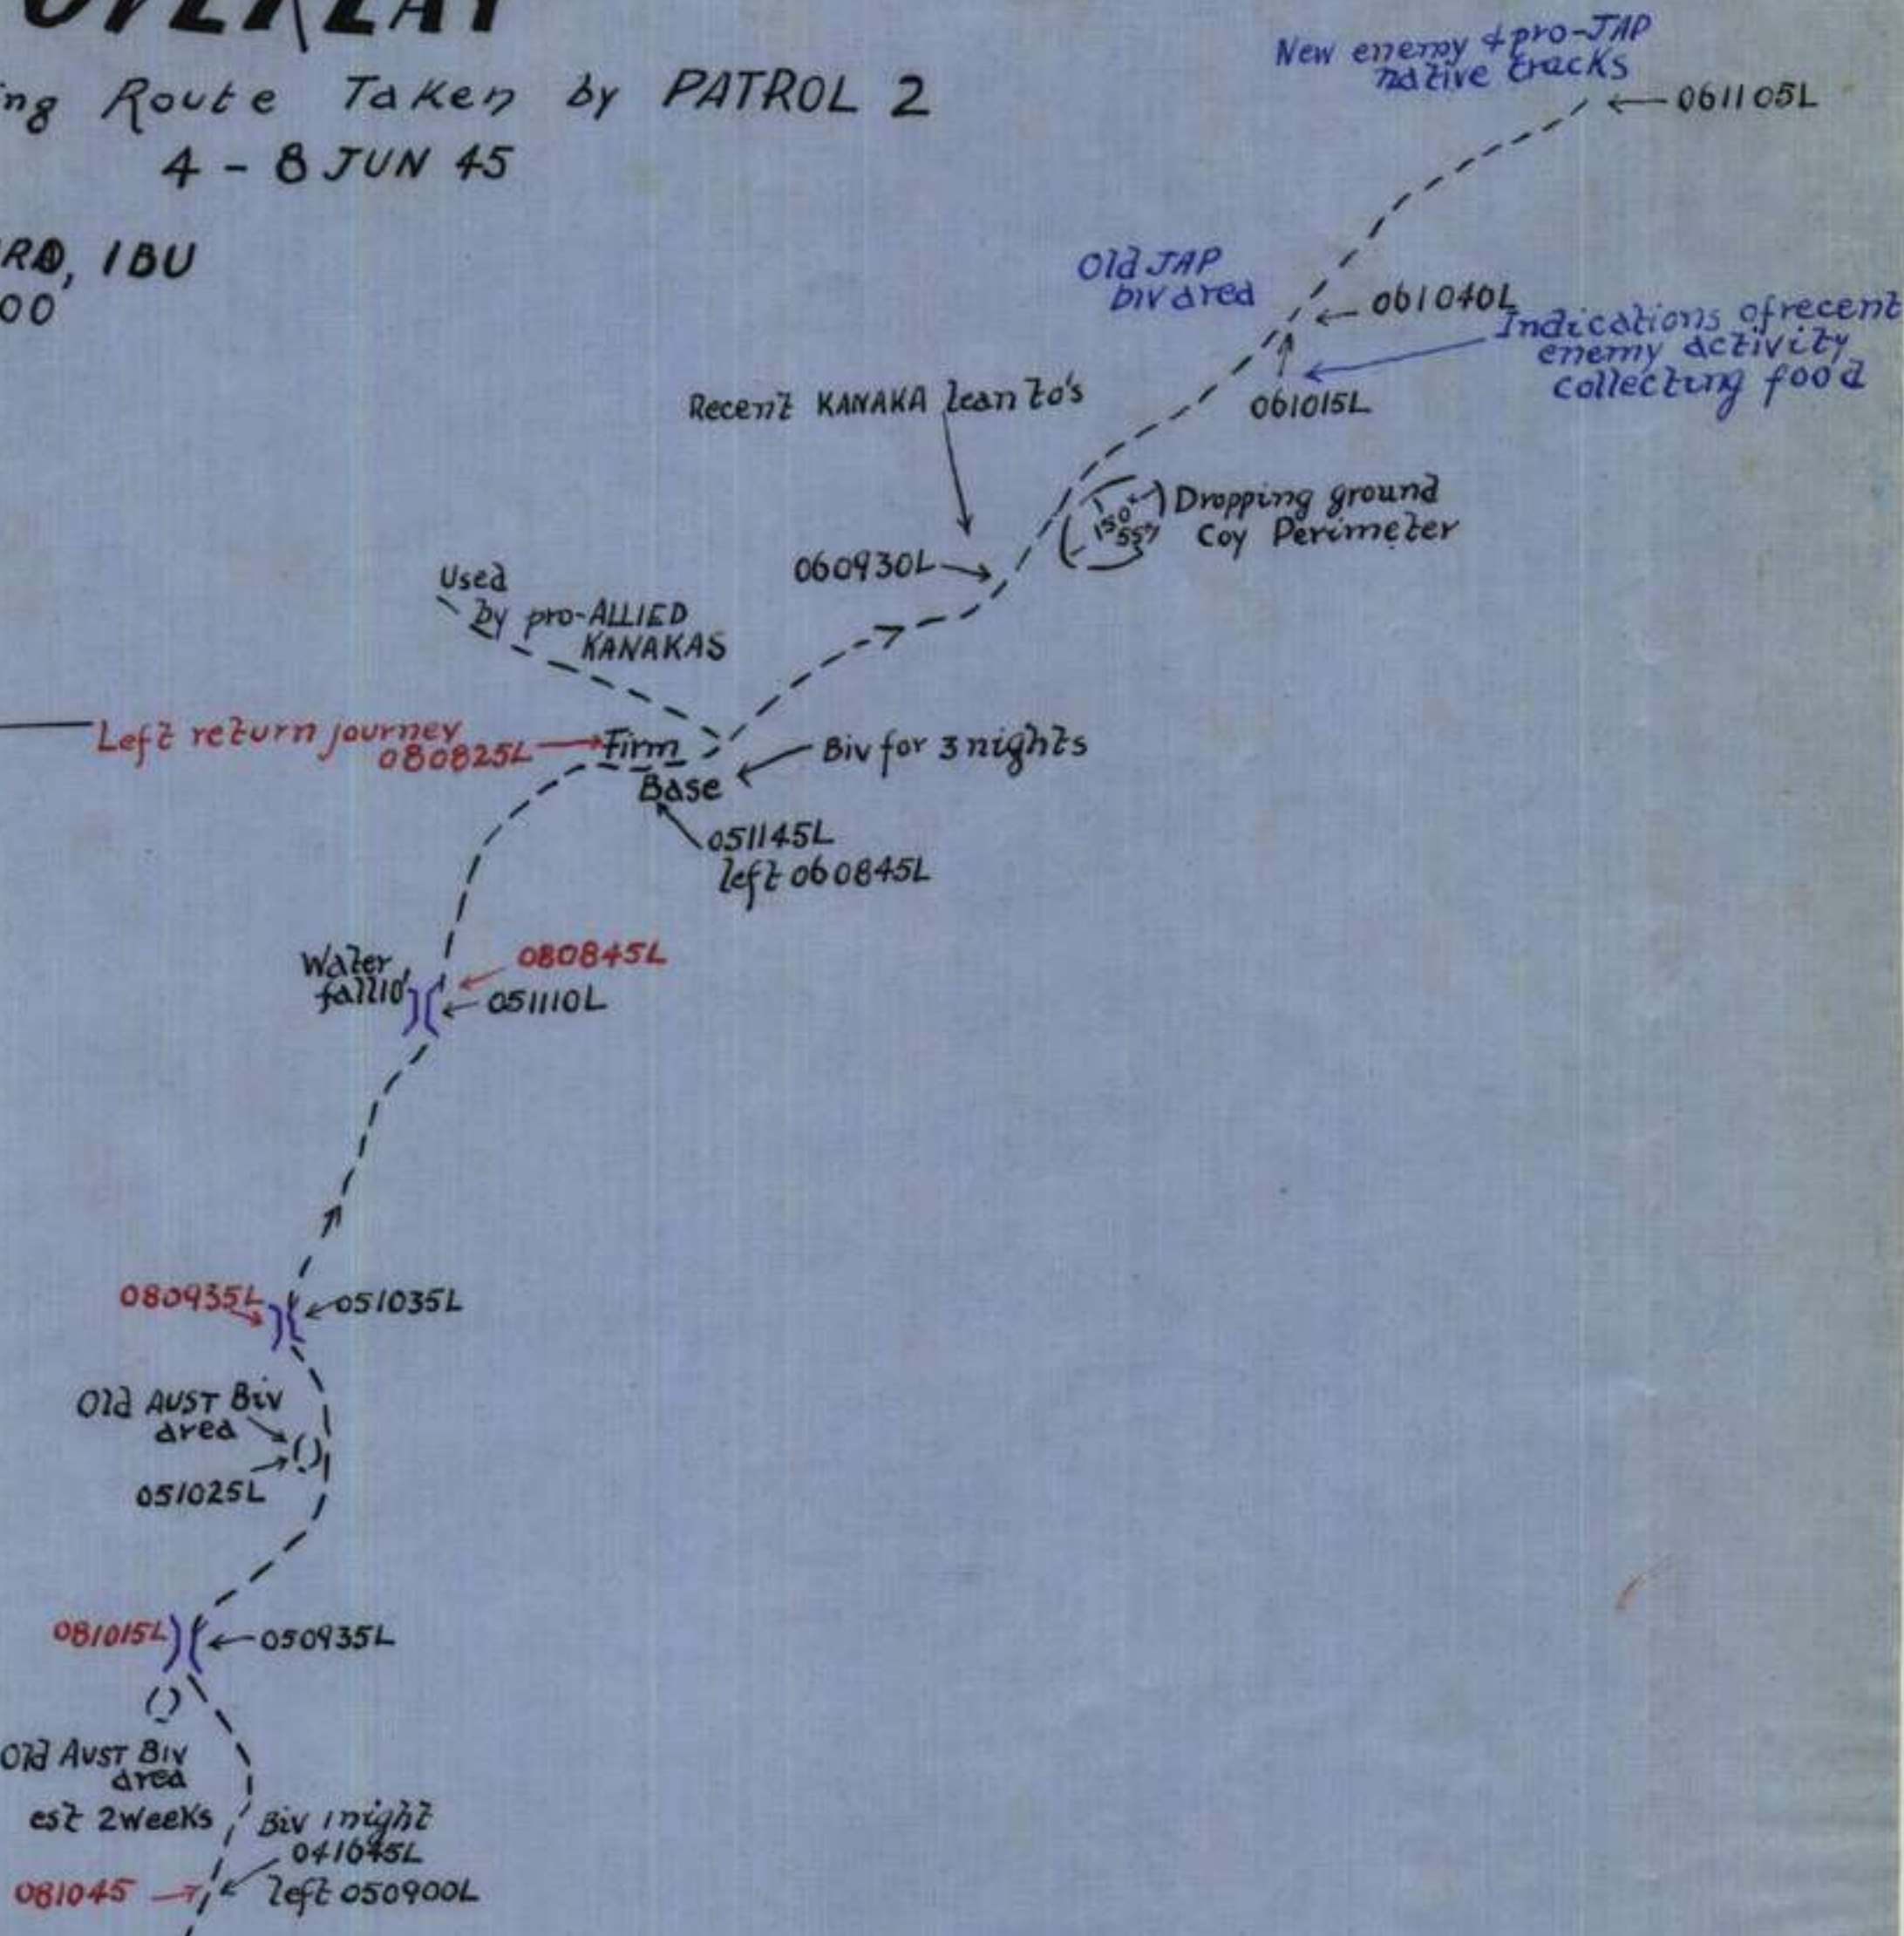 OVERLAY
ing Route Taken by PATROL 2
4 - 8 JUN 45
RD, IBU
00
New enemy & pro-JAP
native tracks
061105L
Old JAP
biv area
061040L
Indications of recent
enemy activity
collecting food
061015L
Recent KANAKA lean to's
Dropping ground
Coy Perimeter
150
55
060930L
Used
by pro-ALLIED
KANAKAS
Left return journey
080825L
Firm
Base
Biv for 3 nights
051145L
left 060845L
Water
fall 10'
080845L
051110L
080935L
051035L
Old AUST Biv
area
051025L
081015L
050935L
Old AUST BIV
area
est 2 weeks
Biv 1 night
041645L
left 050900L
081045